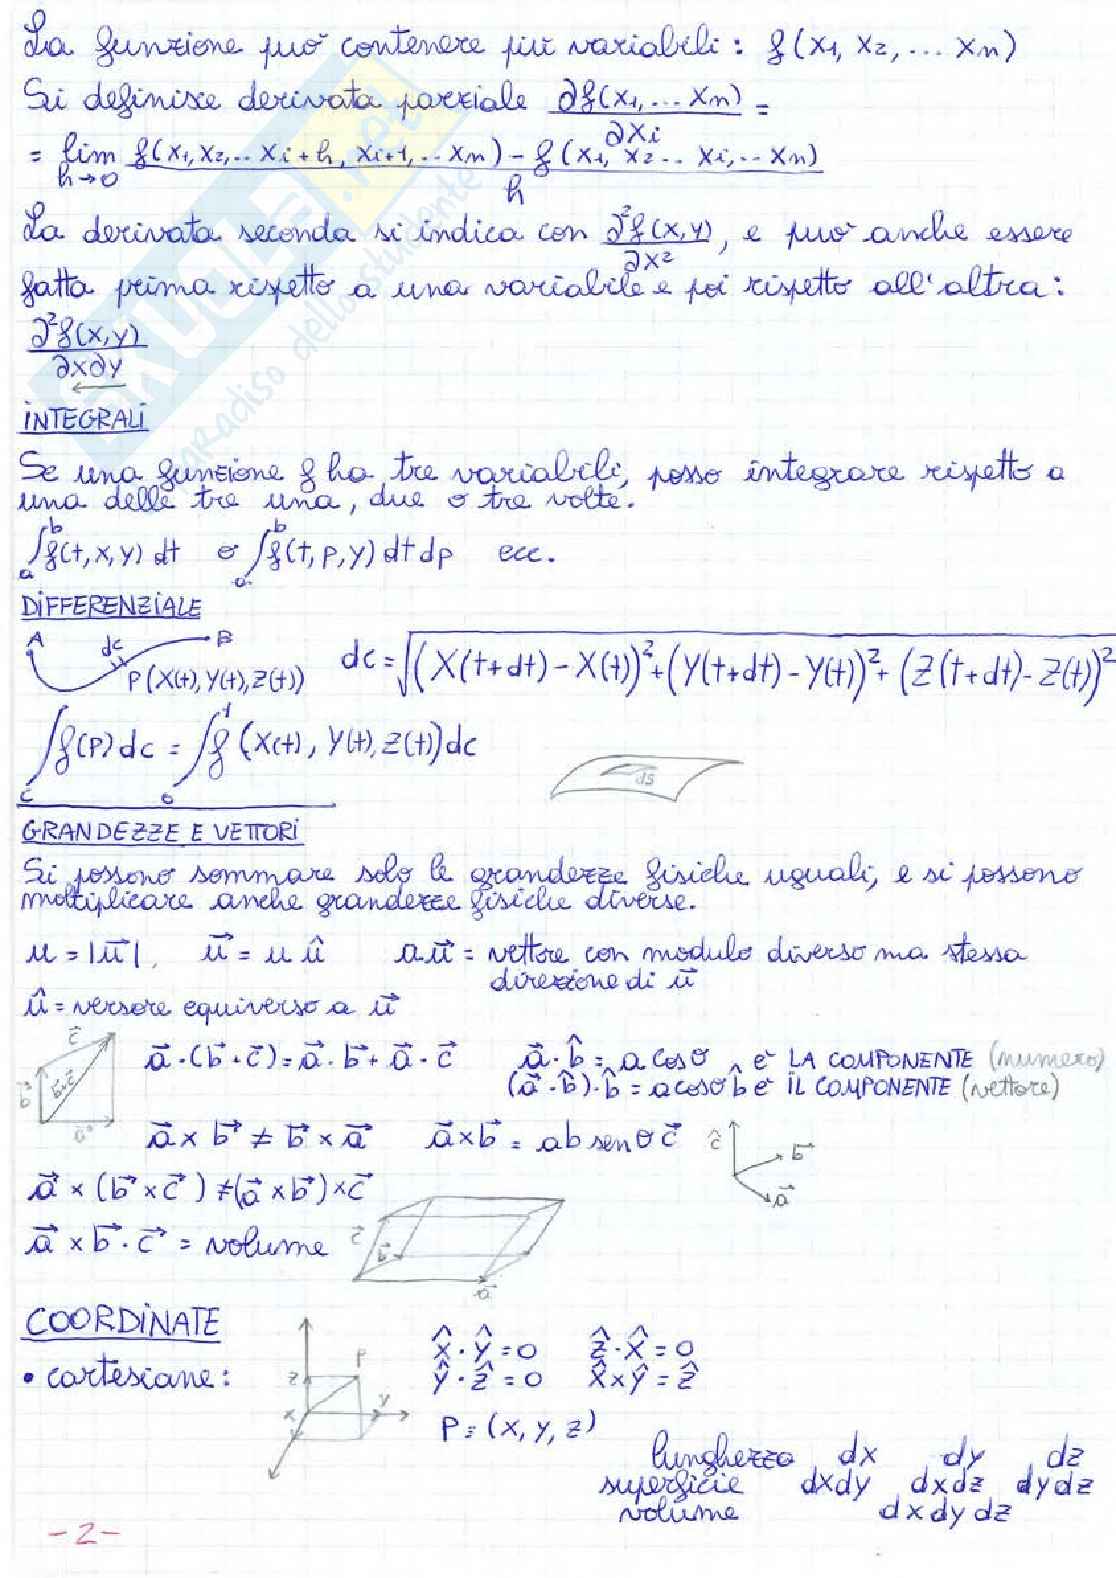 La funzione può contenere più variabili: f(x1, x2, ... xn)
Si definisce derivata parziale ∂f(x1, ... xn) =
∂xi
= lim f(x1, x2, .. xi + h, xi+1, .. xn) - f(x1, x2 .. xi, .. xn)
h→0 h
La derivata seconda si indica con ∂²f(x,y), e può anche essere
∂x²
fatta prima rispetto a una variabile e poi rispetto all'altra:
∂²f(x,y)
∂x∂y
INTEGRALI
Se una funzione f ha tre variabili, posso integrare rispetto a
una delle tre una, due o tre volte.
∫ₐᵇ f(t,x,y) dt o ∫ₐᵇ f(t,p,y) dt dp ecc.
DIFFERENZIALE
A dc B
P(X(t), Y(t), Z(t))
dc = √(X(t+dt) - X(t))² + (Y(t+dt) - Y(t))² + (Z(t+dt) - Z(t))²
∫c f(P) dc = ∫₀¹ f (X(t), Y(t), Z(t)) dc
ds
GRANDEZZE E VETTORI
Si possono sommare solo le grandezze fisiche uguali, e si possono
moltiplicare anche grandezze fisiche diverse.
u = |u⃗|, u⃗ = u û a u⃗ = vettore con modulo diverso ma stessa
direzione di u⃗
û = versore equiverso a u⃗
c⃗ b⃗ b⃗+c⃗ a⃗
a⃗ · (b⃗ + c⃗) = a⃗ · b⃗ + a⃗ · c⃗ a⃗ · b̂ = a cosθ è LA COMPONENTE (numero)
(a⃗ · b̂) · b̂ = a cosθ b̂ è IL COMPONENTE (vettore)
a⃗ × b⃗ ≠ b⃗ × a⃗ a⃗ × b⃗ = ab senθ c⃗ ĉ b⃗ a⃗
a⃗ × (b⃗ × c⃗) ≠ (a⃗ × b⃗) × c⃗
a⃗ × b⃗ · c⃗ = volume c⃗ b⃗ a⃗
COORDINATE
• cartesiane:
P z x y
x̂ · ŷ = 0 ẑ · x̂ = 0
ŷ · ẑ = 0 x̂ × ŷ = ẑ
P = (x, y, z)
lunghezza dx dy dz
superficie dxdy dxdz dydz
volume dx dy dz
-2-
SKUOLA.net
paradiso dello studente